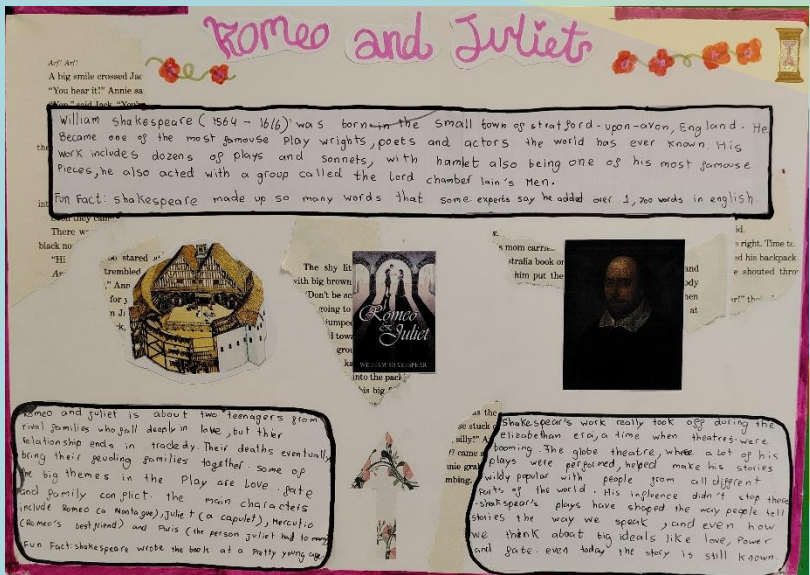 Romeo and Juliet
Arf! Arf!
A big smile crossed Jac
"You hear it!" Annie sa
William shakespeare ( 1564 - 1616) was born in the small town of stratford-upon-avon, England. He
Became one of the most famouse Play wrights, poets and actors the world has ever known. His
work includes dozens of plays and sonnets, with hamlet also being one of his most famouse
Pieces, he also acted with a group called the Lord chamber lain's Men.
Fun Fact: shakespeare made up so many words that some experts say he added over 1,700 words in english.
There w
black no
"Hi
stared a
trembled
" Ann
for
The shy lit
with big brown
"Don't be sc
going to
jumpe
d tow
grou
into the pack
his big
Romeo
& Juliet
WILLIAM SHAKESPEAR
s mom carrie
stralia book or
kim put the
right. Time to
ed his backpack
e shouted throu
and
ody
hen
at
Romeo and juliet is about two teenagers from
rival families who fall deeply in love, but thier
relationship ends in tradedy. Their deaths eventually
bring their feuding families together. some of
he big themes in the Play are Love. fate
and family conflict. the main characteis
include Romeo (a Montague), juliet (a capulet), Mercutio
(Romeo's best friend) and Paris (the person juliet had to marry)
Fun Fact: shakespeare wrobe the book at a Pretty young age
as the
so stuck o
silly!" A
ff came
nie gra
mbing.
Shakespear's work really took off during the
elizabethan era, a time when theatres were
booming. The globe theatre, where a lot of his
plays were performed, helped make his stories
wildly popular with people from all different
Parts of the world. His influence didn't stop there
-shakespear's plays have shaped the way people tell
stories the way we speak, and even how
we think about big ideals like love, Power
and fate. even today the story is still known.